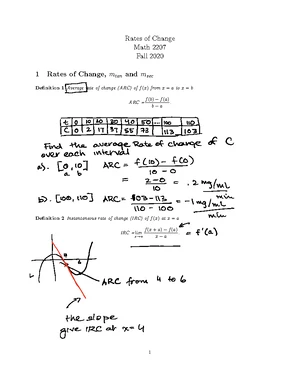 Rates of Change
Math 2207
Fall 2020
1 Rates of Change, m_tan and m_sec
Definition 1 Average rate of change (ARC) of f(x) from x = a to x = b
ARC = f(b) − f(a) / b − a
t 0 10 20 30 40 50 ... 100 110
C 0 2 17 37 55 73 ... 113 103
Find the average Rate of change of C
over each interval
a). [0, 10] ARC = f(10) − f(0) / 10 − 0
a b
= 2 − 0 / 10 = .2 mg/mL / min
b). [100, 110] ARC = 103 − 113 / 110 − 100 = −1 mg/mL / min
Definition 2 Instantaneous rate of change (IRC) of f(x) at x = a
IRC = lim f(x) − f(a) / x − a = f'(a)
ARC from 4 to 6
the slope
give IRC at x = 4
1